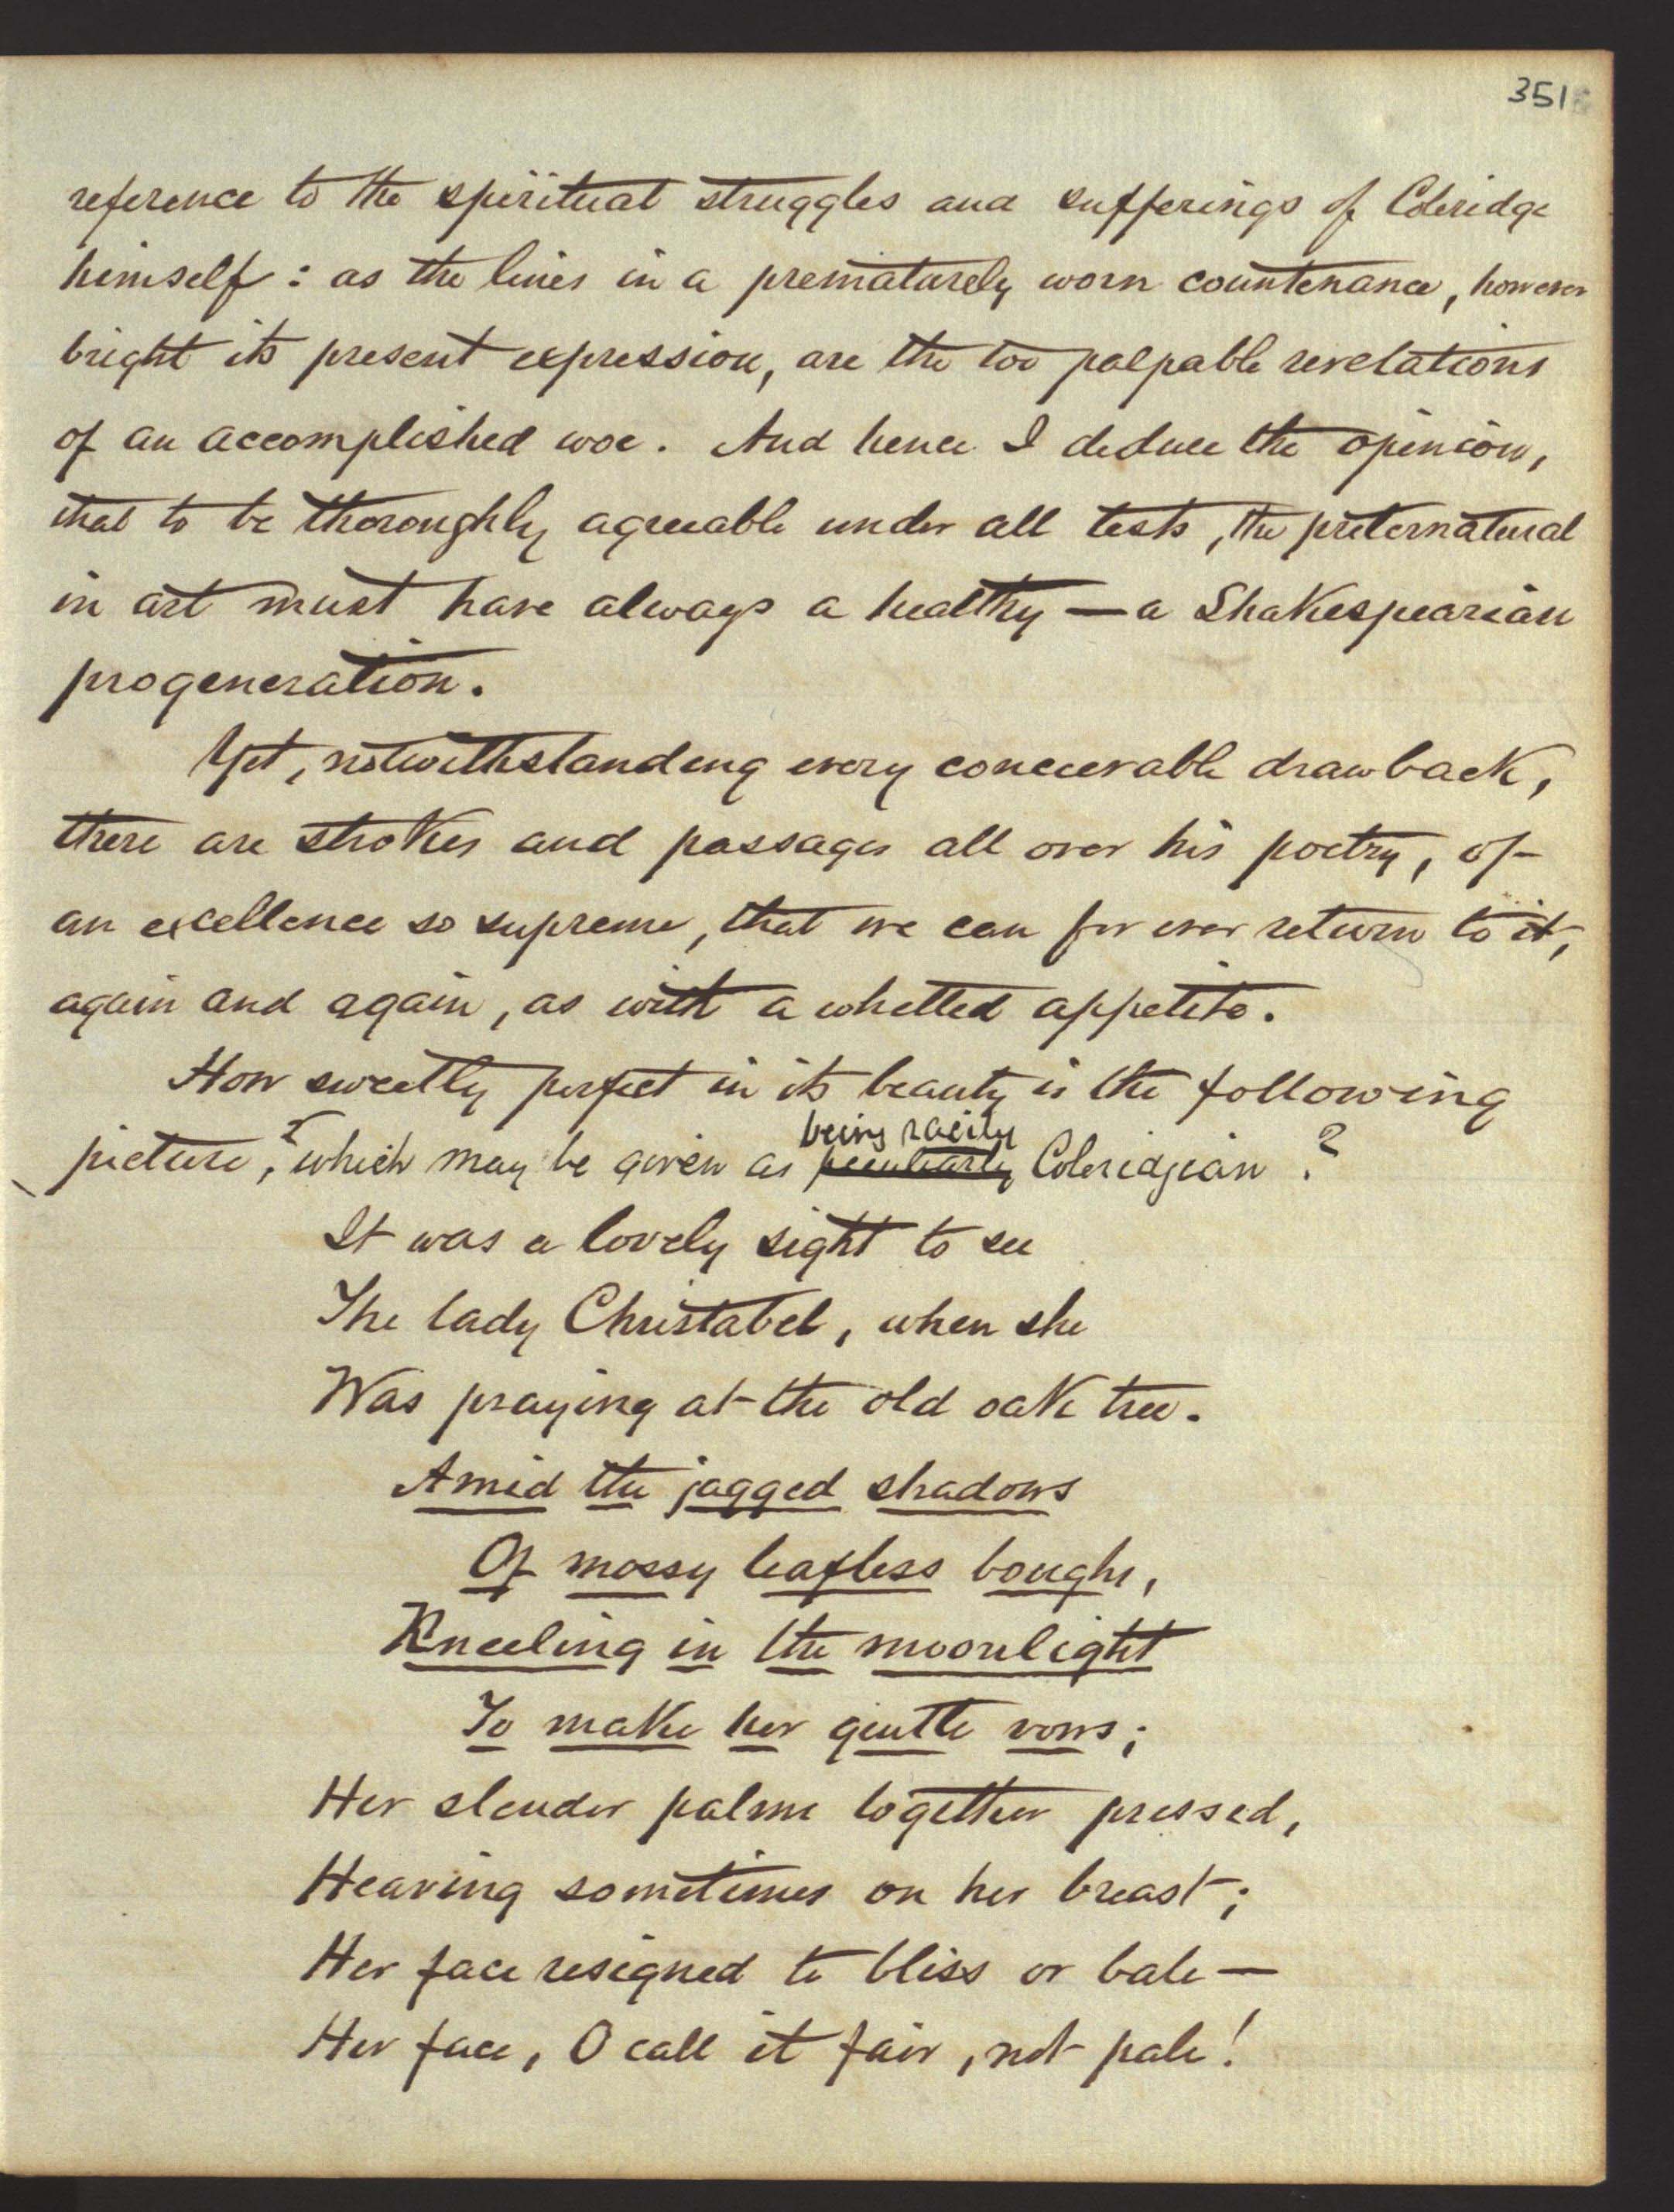 351
reference to the spiritual struggles and sufferings of Coleridge
himself: as the lines in a prematurely worn countenance, however
bright its present expression, are the too palpable revelations
of an accomplished woe. And hence I deduce the opinion,
that to be thoroughly agreeable under all tests, the preternatural
in art must have always a healthy — a Shakespearian
progeneration.
Yet, notwithstanding every conceivable drawback,
there are strokes and passages all over his poetry, of
an excellence so supreme, that we can for ever return to it,
again and again, as with a whetted appetite.
How sweetly perfect in its beauty is the following
being racily
picture, which may be given as peculiarly Coleridgian ?
It was a lovely sight to see
The lady Christabel, when she
Was praying at the old oak tree.
Amid the jagged shadows
Of mossy leafless boughs,
Kneeling in the moonlight
To make her gentle vows;
Her slender palms together pressed,
Heaving sometimes on her breast;
Her face resigned to bliss or bale —
Her face, O call it fair, not pale!